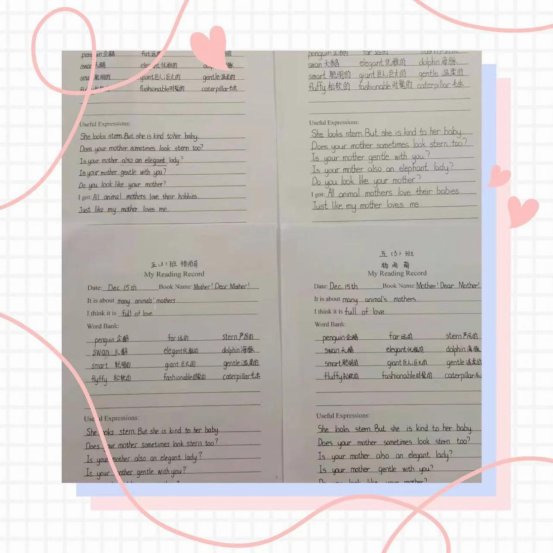 penguin 企鹅
swan 天鹅 elegant 优雅的 dolphin 海豚
smart 聪明的 giant 巨人,巨大的 gentle 温柔的
fluffy 松软的 fashionable 时髦的 caterpillar 毛虫
Useful Expressions:
She looks stern. But she is kind to her baby.
Does your mother sometimes look stern too?
Is your mother also an elegant lady?
Is your mother gentle with you?
Do you look like your mother?
I got: All animal mothers love their bobbies.
Just like my mother loves me.
penguin 企鹅
swan 天鹅 elegant 优雅的 dolphin 海豚
smart 聪明的 giant 巨人,巨大的 gentle 温柔的
fluffy 松软的 fashionable 时髦的 caterpillar 毛虫
Useful Expressions:
She looks stern. But she is kind to her baby.
Does your mother sometimes look stern too?
Is your mother gentle with you?
Is your mother also an elephant lady?
Do you look like your mother?
I got: All animal mothers love their babies.
Just like, my mother loves me.
My Reading Record
Date: Dec. 15th Book Name: Mother! Dear Mother!
It is about many animals' mothers
I think it is full of love.
Word Bank:
penguin 企鹅 far 远的 stern 严厉的
swan 天鹅 elegant 优雅的 dolphin 海豚
smart 聪明的 giant 巨大的 gentle 温柔的
fluffy 松软的 fashionable 时髦的 caterpillar 毛虫
Useful Expressions:
She looks stern. But she is kind to her baby.
Does your mother sometimes look stern too?
Is your mother also an elegant lady?
Is your mother gentle with you?
My Reading Record
Date: Dec. 15th Book Name: Mother! Dear Mother!
It is about many animal's mothers.
I think it is full of love.
Word Bank:
penguin 企鹅 far 远的 stern 严厉的
swan 天鹅 elegant 优雅的 dolphin 海豚
smart 聪明的 giant 巨人,巨大的 gentle 温柔的
fluffy 松软的 fashionable 时髦的 caterpillar 毛虫
Useful Expressions:
She looks stern. But she is kind to her baby.
Does your mother sometimes look stern too?
Is your mother also an elegant lady?
Is your mother gentle with you?
Do you look like your mother?